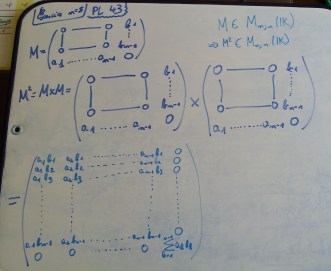 Exercice n=5 PL 43
M = ( 0 0 b1
0 0 bm-1
a1 ........ am-1 0 )
M ∈ Mm,m(IK)
⇒ M² ∈ Mm,m(IK)
M² = M×M = ( 0 0 b1
0 0 bm-1
a1 ........ am-1 0 ) × ( 0 0 b1
0 0 bm-1
a1 ........ am-1 0 )
= ( a1b1 a2b1 ........ am-1b1 0
a1b2 a2b2 ........ am-1b2 0
a1b3 a2b3 ........ am-1b3 0
a1bm-1 a2bm-1 ........ am-1bm-1 0
0 0 ........ 0 Σ akbk )